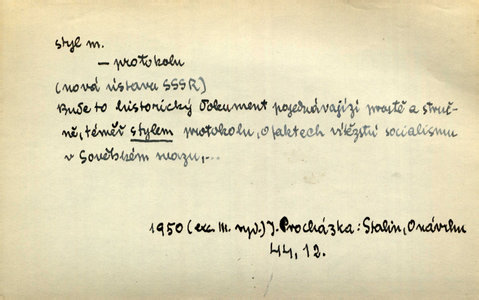 styl m.
— protokolu
(nová ústava SSSR)
Bude to historický dokument pojednávající prostě a struč-
ně, téměř stylem protokolu, o faktech vítězství socialismu
v Sovětském svazu,...
1950 (exc. III. vyd.) J. Procházka: Stalin, O návrhu
44, 12.